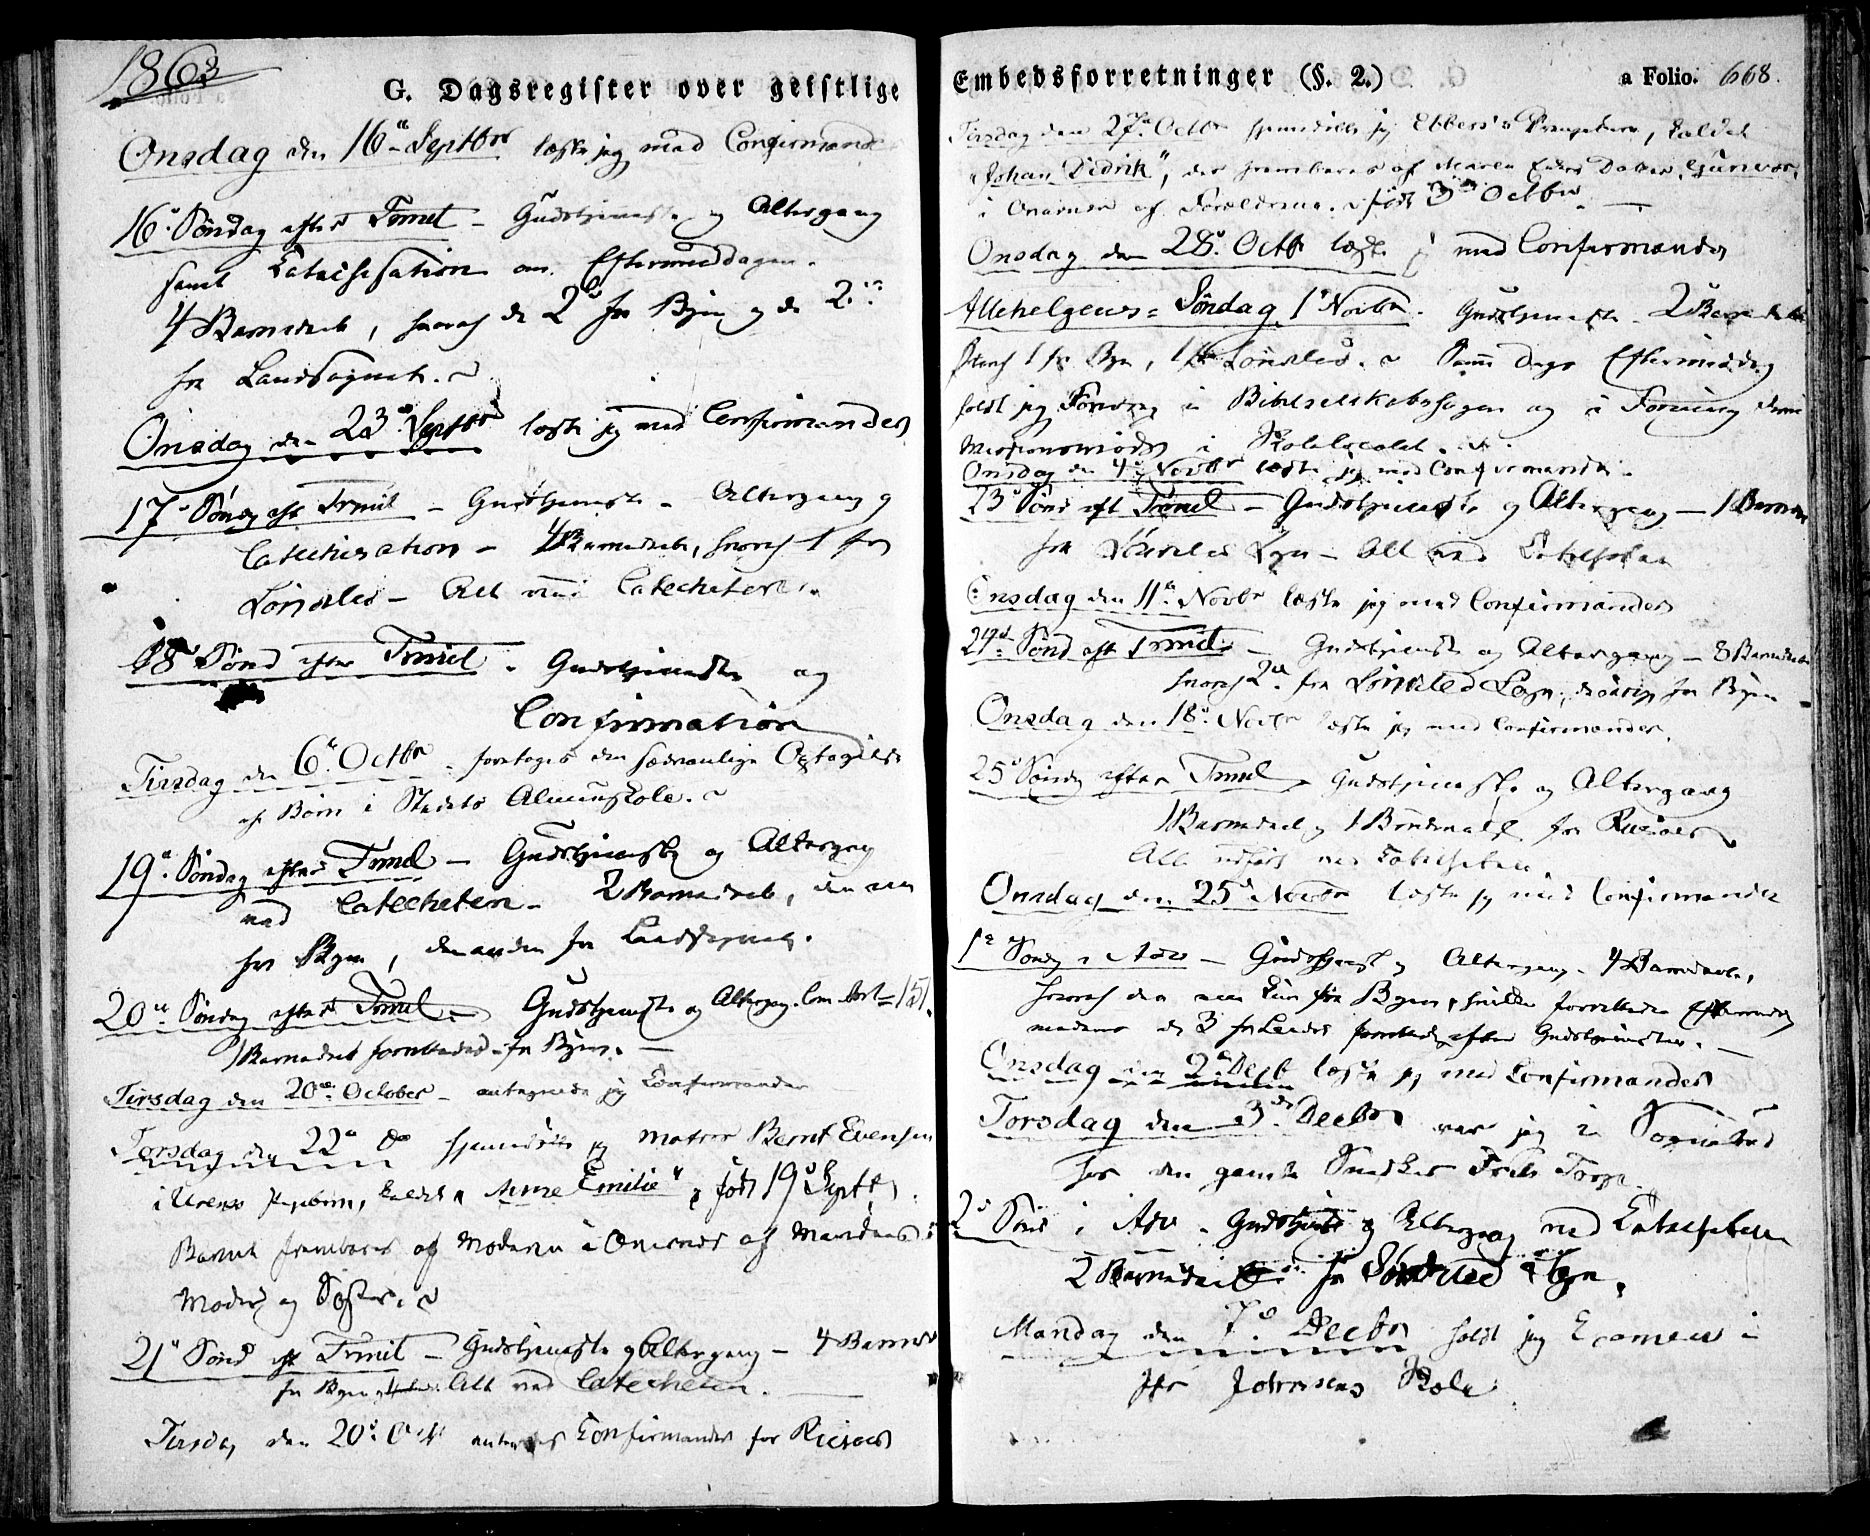 1863
G. Dagsregister over geistlige
Onsdag den 16de Septbr læste jeg med Confirmand
16de Søndag efter Trinit – Gudstjeneste og Altergang
samt Catechisation om Eftermiddagen.
4 Barnedaab, hvoraf de 2de fra Byen og de 2de
fra Landsognet.
Onsdag den 23de Septbr læste jeg med Confirmander
17de Sønd eft Trinit – Gudstjeneste – Altergang og
Catechisation – 4 Barnedaab, hvoraf 1 fra
Søndeled – Alt ved Catecheten.
18de Sønd efter Trinit – Gudstjeneste og
Confirmation
Tirsdag den 6te Octbr – foretoges den sædvanlige Optagelse
af Børn i Stedets Almuskole.
19de Søndag efter Trinit – Gudstjeneste og Altergang
ved Catecheten – 2 Barnedaab, den ene
fra Byen, den anden fra Landsognet.
20de Søndag efter Trinit – Gudstjeneste og Altergang. Com. Ant = 151.
1 Barnedaab forrettedes – fra Byen. –
Tirsdag den 20de October – antegnede jeg Confirmander
Torsdag den 22de do hjemmedøbte jeg Matros Bernt Evensen
i Urens Pigebarn, kaldet "Anne Emilie", født 19de Septbr.
Barnet frembares af Moderen i Overvær af Mandens
Moder og Søster.
21de Sønd eft Trinit – Gudstjeneste og Altergang – 4 Barned
fra Byen Alt ved Catecheten.
Tirsdag den 20de Oct antegnedes Confirmander for Riisøer
Embedsforretninger (§. 2.)
a Folio. 668.
Tirsdag den 27de Octbr hjemmedøbte jeg Drengebarn, kaldet
"Johan Didrik", der frembares af Datter, Gunvor,
i Overvær af Forældrene. født 3de Octbr.
Onsdag den 28de Octbr læste jeg med Confirmander
Allehelgens = Søndag 1ste Novbr. Gudstjeneste – 2 Barnedaab
hvoraf 1 fra Byen, 1 fra Søndeled. Samme Dags Eftermiddag
holdt jeg Foredrag i Bibelselskabssagen og i Forening
Missionsmøde i Skolelocalet.
Onsdag den 4de Novbr læste jeg med Confirmander.
23de Sønd eft Trinit – Gudstjeneste og Altergang – 1 Barned
fra Søndeleds Sogn – Alt ved Catecheten
Onsdag den 11te Novbr læste jeg med Confirmander
24de Sønd eft Trinit – Gudstjeneste og Altergang – 8 Barnedaab
hvoraf 2de fra Søndeled Sogn, de øvrige fra Byen –
Onsdag den 18de Novbr læste jeg med Confirmander.
25de Søndg efter Trinit – Gudstjeneste og Altergang
1 Barnedaab og 1 fra Riisøer
Alt udført ved Catecheten
Onsdag den 25de Novbr læste jg med Confirmander
1ste Søndg i Adv – Gudstjenest og Altergang – 4 Barnedaab,
hvoraf den ene kun fra Byen, hvilken forrettedes
medens de 3 fra Landet forrettedes efter Gudstjenesten. –
Onsdag den 2de Decb læste jg med Confirmander
Torsdag den 3de Decbr var jeg i Sognebud
hos den gamle Snedker Torp.
2de Sønd i Adv – Gudstjeneste og Altergang ved Catecheten
2 Barnedaab fra Søndeled Sogn.
Mandag den 7de Decbr holdt jeg Examen i
Hr Johnsens Skole